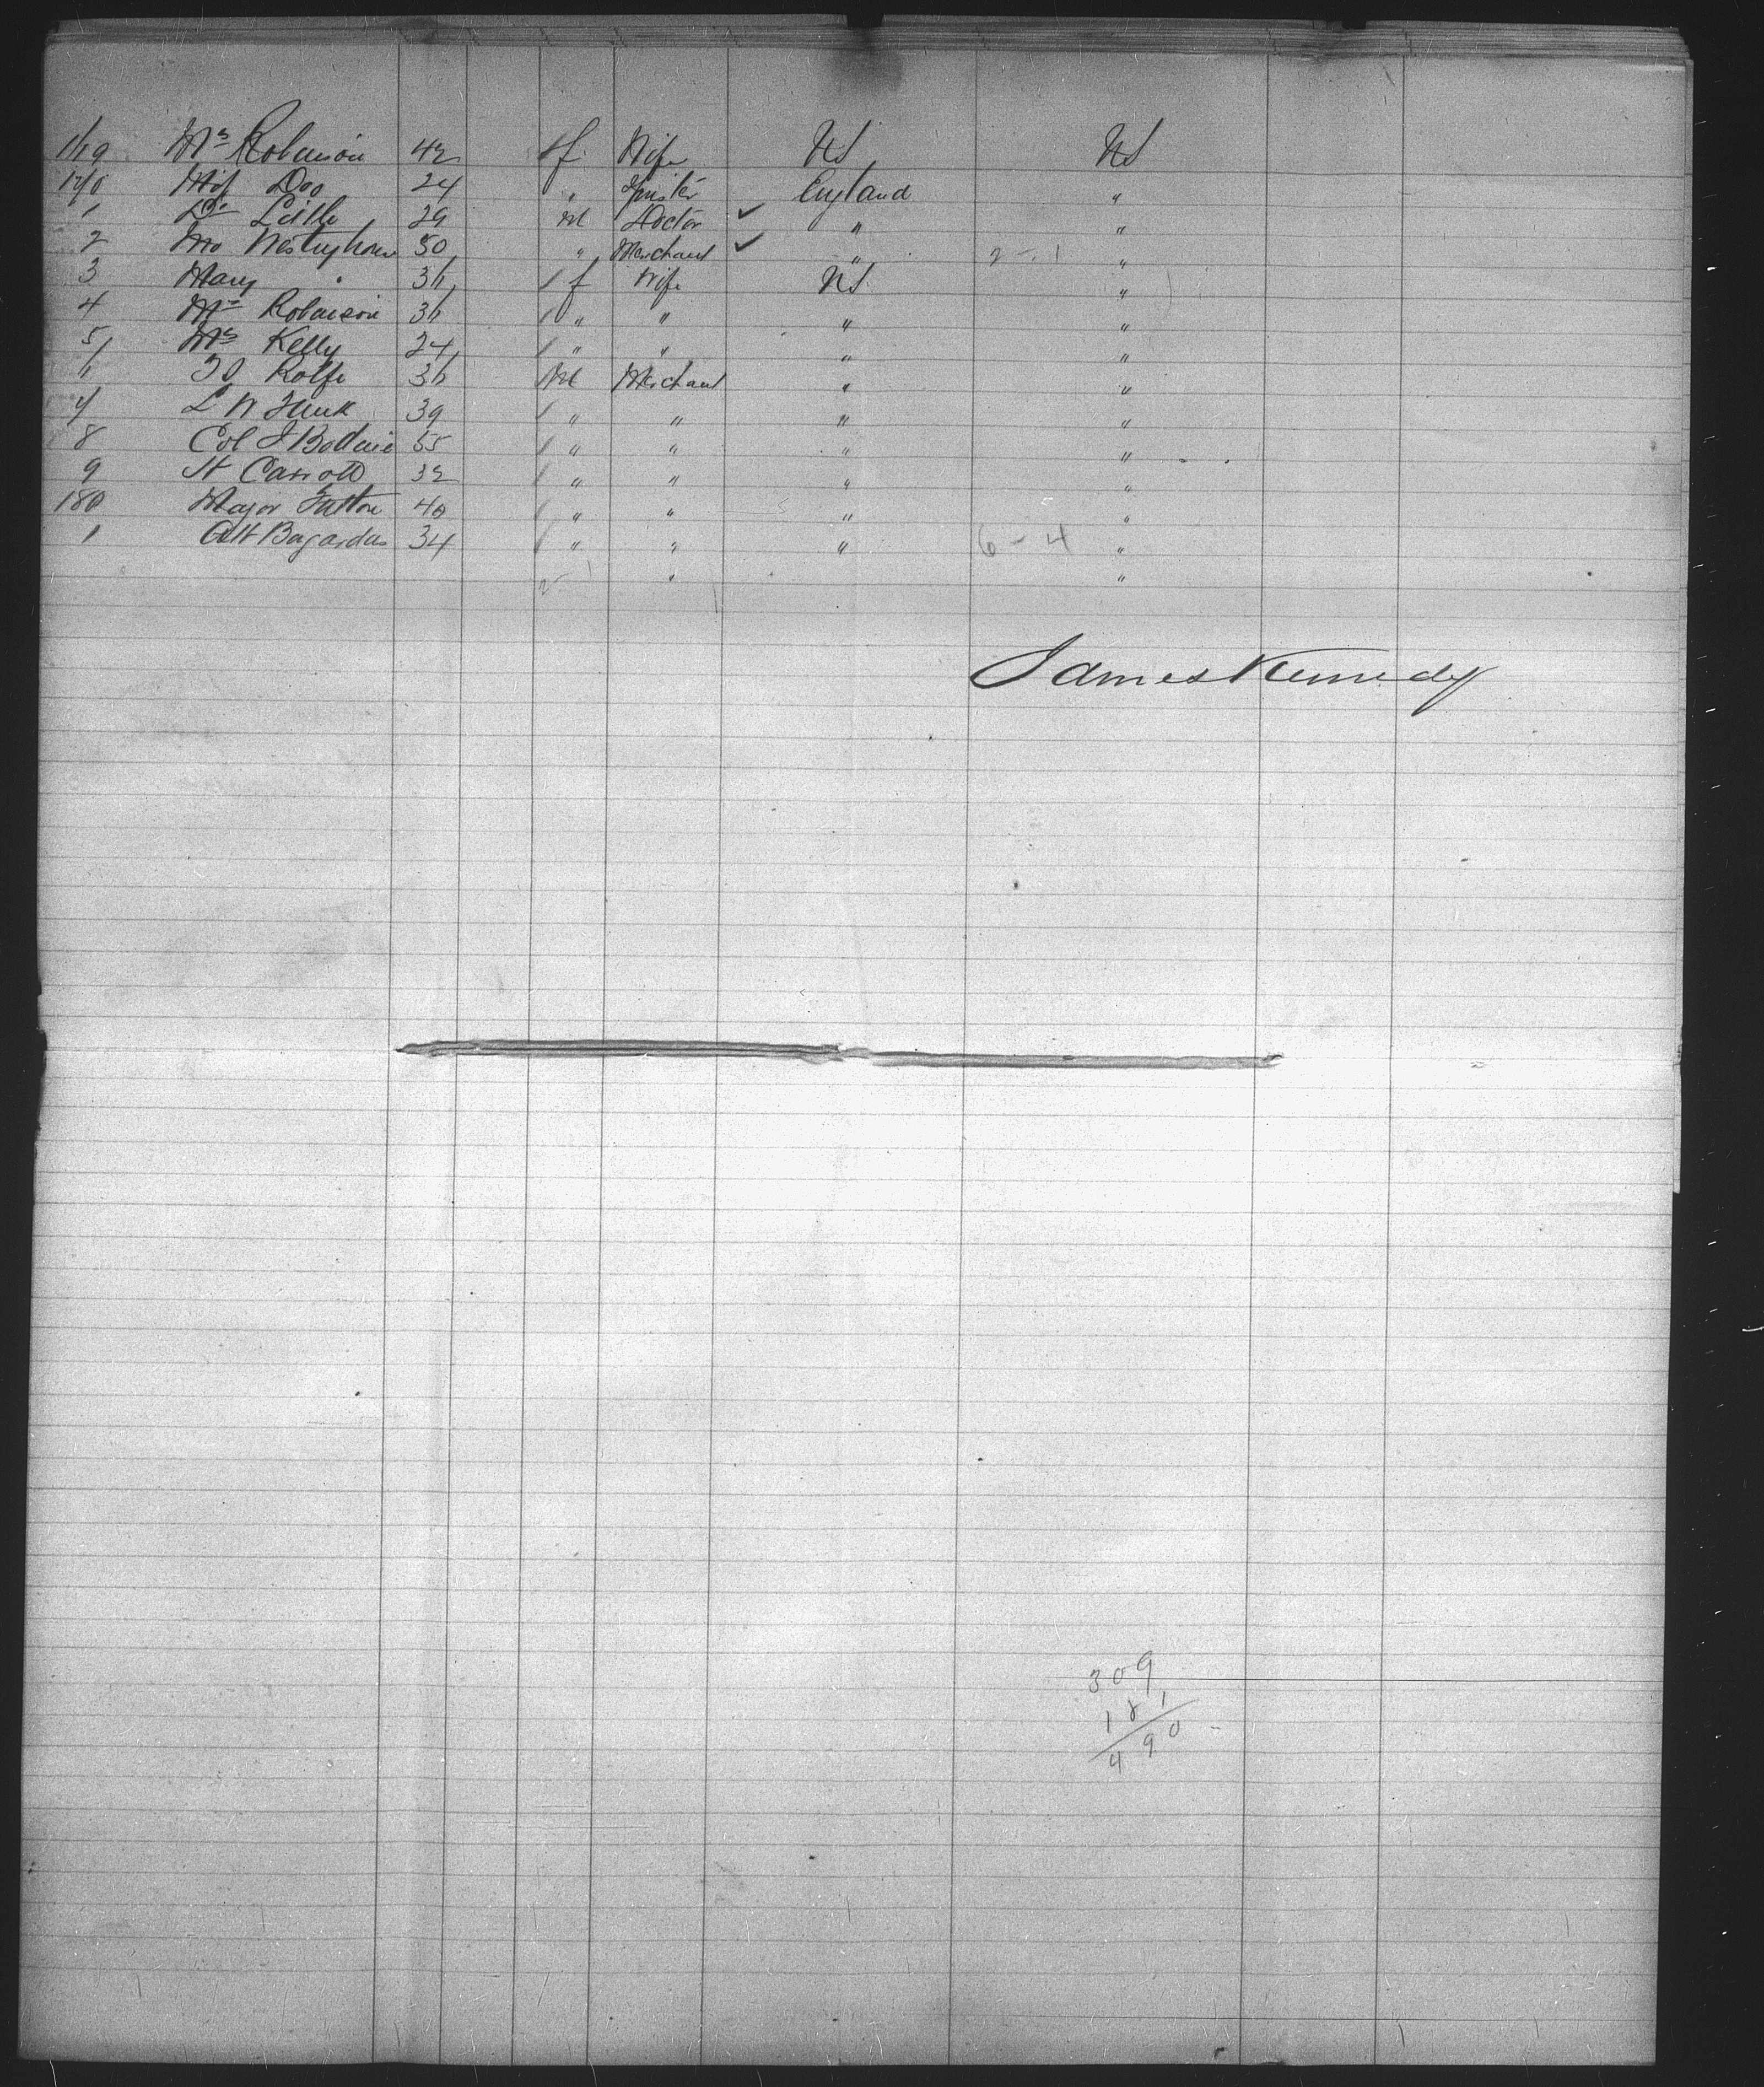 169 Mrs Robinson 42 f Wife US US
170 Miss Doo 24 " Spinster England "
1 Dr Little 29 M Doctor ✓ " "
2 Mr Westinghouse 50 " Merchant ✓ " 2-1 "
3 Mary " 36 f Wife US "
4 Mrs Robinson 36 " " " "
5 Mrs Kelly 24 " " " "
6 Rolfe 36 M Merchant " "
7 L W Funk 39 " " " "
8 Col J 55 " " " "
9 H 32 " " " "
180 Major Fulton 40 " " " "
1 AH Bogardus 34 " " " 6-4 "
2 " "
James Kennedy
309
181
490